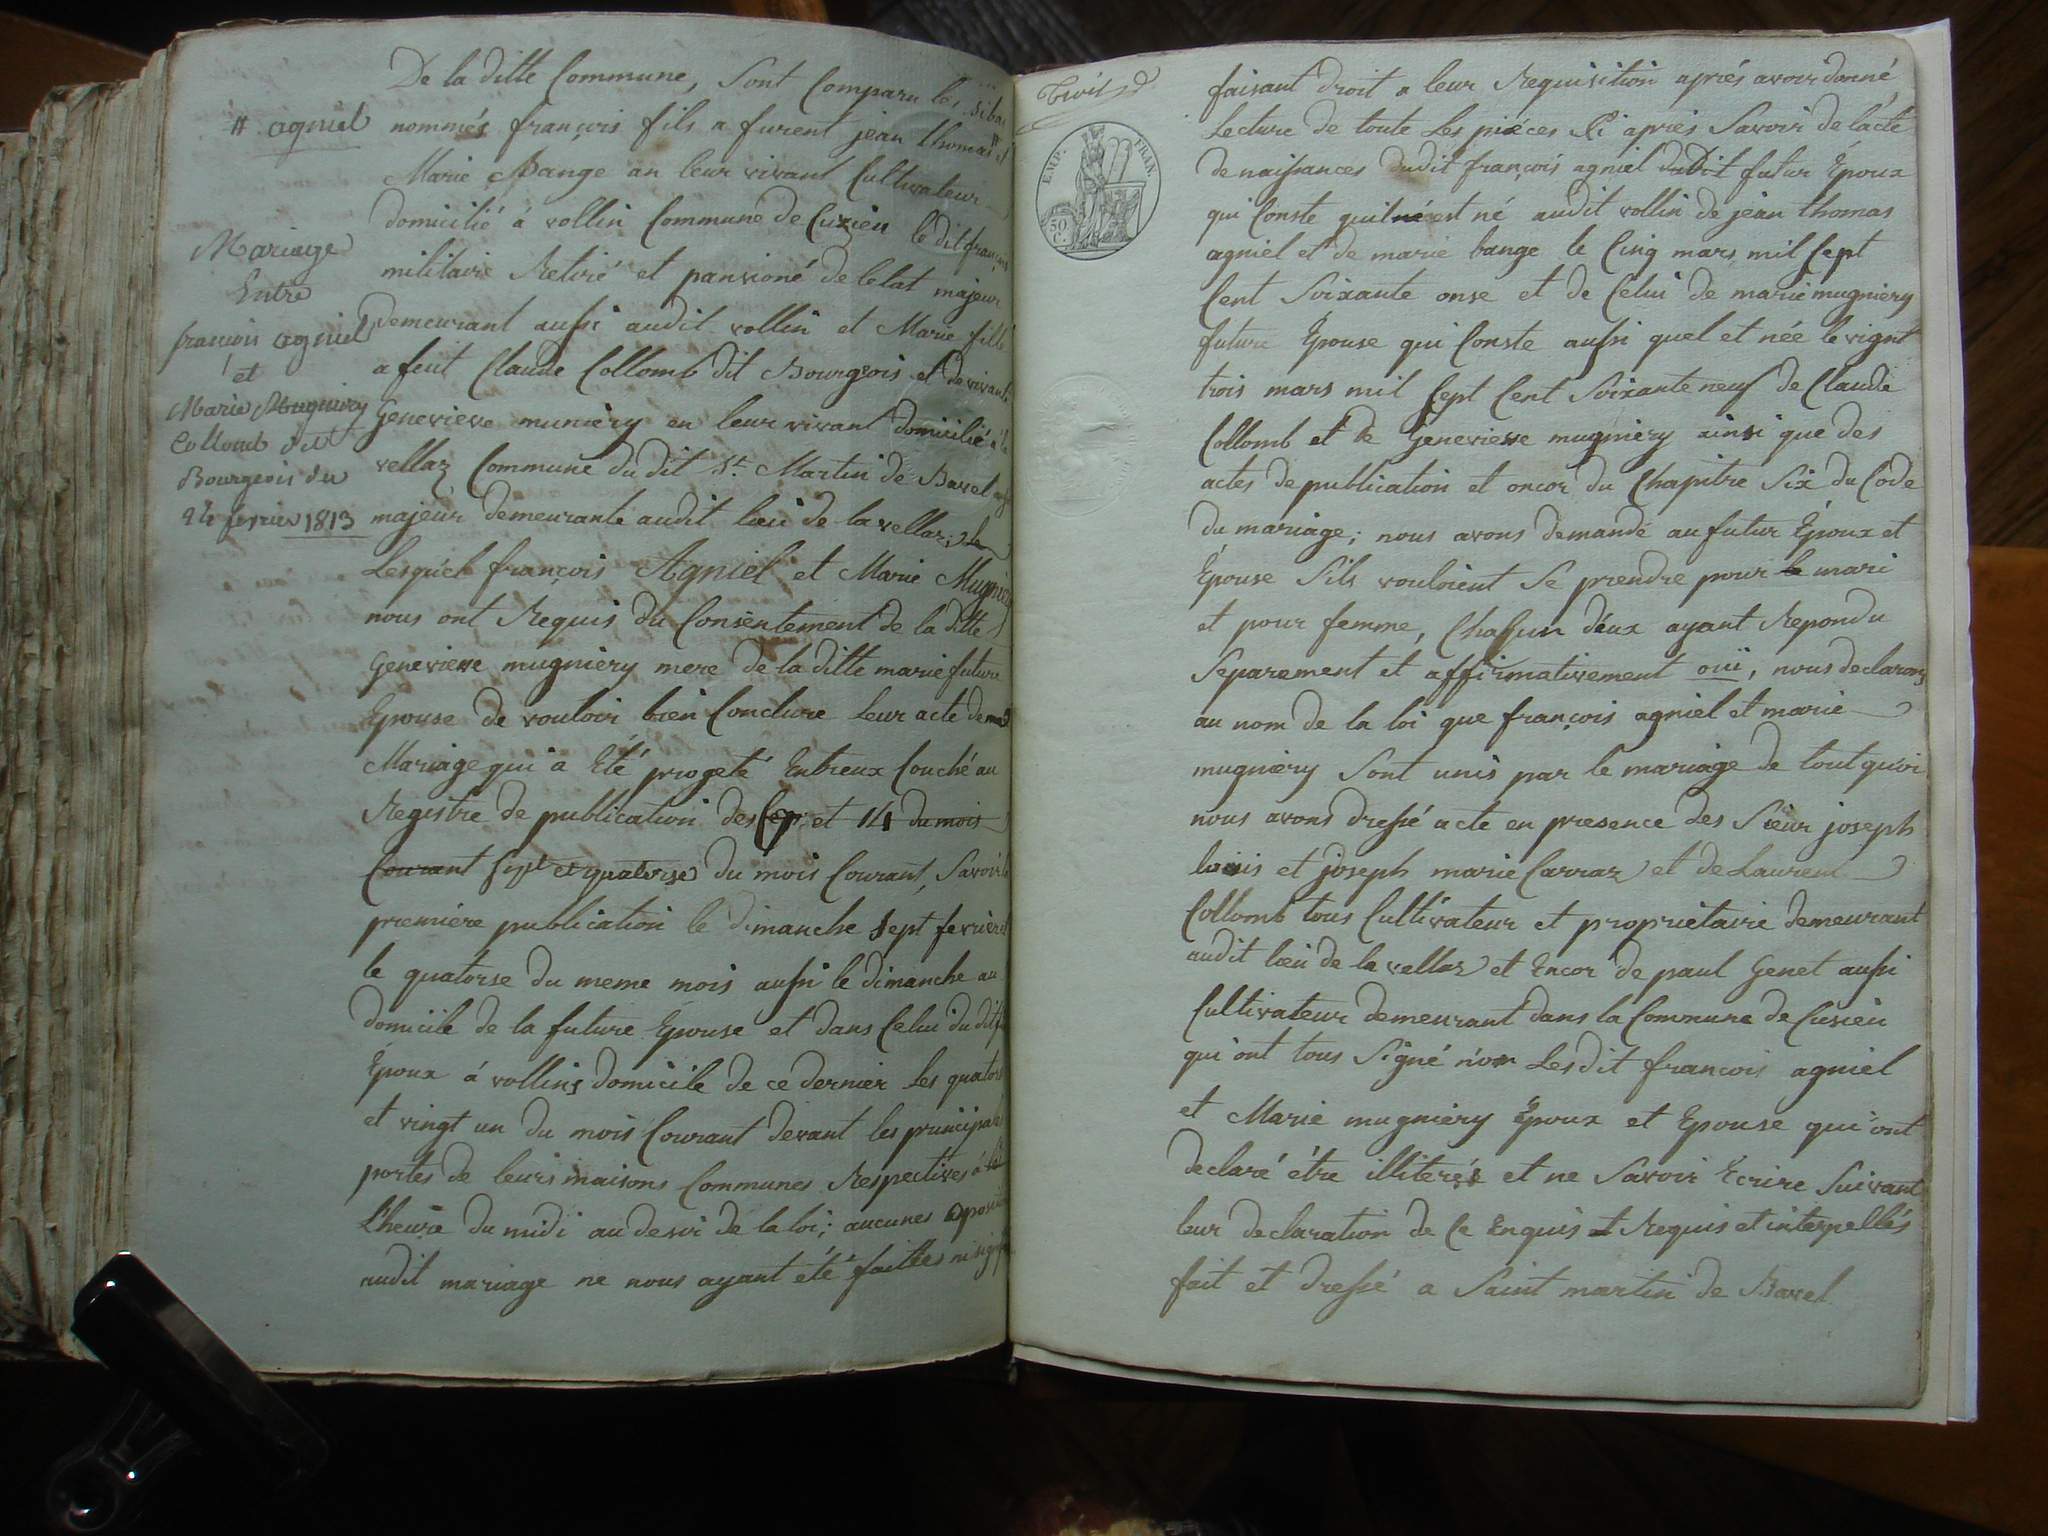 De la ditte Commune, sont Comparu les
# agniel
nommés françois fils a furent jean thomas # et
Marie Bange an leur vivant Cultivateur
domicilié à vollin Commune de Cuzieu le dit françois
militaire Retiré et pansioné de letat majeur
demeurant aussi audit vollin et Marie fille
a feut Claude Collomb dit Bourgeois et de vivante
Genevieve muniery en leur vivant domicilié à la
vellaz Commune du dit St. Martin de Bavel
majeur demeurante audit lieu de la vellaz; le
Lesquel françois Agniel et Marie Mugniery
nous ont Requis du Consentement de la ditte
Genevieve mugniery mere de la ditte marie future
Epouse de vouloir bien Conclure Leur acte de
Mariage qui a Eté progeté Entreux Couché au
Registre de publication des Sep et 14 du mois
Courant sept et quatorse du mois Courant, Savoir la
premiere publication le dimanche sept fevrier et
le quatorse du meme mois aussi le dimanche au
domicile de la future Epouse et dans Celui du dit
Epoux à vollins domicile de ce dernier Les quatorse
et vingt un du mois Courant devant les principales
portes de leurs maisons Communes Respectives à
L'heure du midi au desir de la loi; aucunes oposition
audit mariage ne nous ayant été faittes ni
Mariage
Entre
françois agniel
et
Marie Mugniery
Collomb dit
Bourgeois du
24 fevrier 1813
EMP. FRAN.
50 C.
faisant droit a leur Requisition aprés avoir donné
Lecture de toute Les piéces Ci aprés Savoir de lacte
de naissances dudit françois agniel dudit futur Epoux
qui Conste quil né est né audit vollin de jean thomas
agniel et de marie bange le Cinq mars mil Sept
Cent Soixante onse et de Celui de marie mugniery
future Epouse qui Conste aussi quel et née le vignt
trois mars mil Sept Cent Soixante neuf de Claude
Collomb et de Genevieve mugniery ainsi que des
actes de publication et oncor du Chapitre Six du Code
du mariage; nous avons demandé au futur Epoux et
Epouse Sils vouloient Se prendre pour le mari
et pour femme, Chacun deux ayant Repondu
Separement et affirmativement oui, nous declarons
au nom de la loi que françois agniel et marie
mugniery Sont unis par le mariage de tout quoi
nous avons dressé acte en presence des Sieur joseph
louis et joseph marie Carraz et de Laurent
Collomb tous Cultivateur et propriétaire demeurant
audit lieu de la vellaz et Encor de paul Genet aussi
Cultivateur demeurant dans la Commune de Cusieu
qui ont tous Signé non Lesdit francois agniel
et Marie mugniery Epoux et Epouse qui ont
declaré étre illiterés et ne Savoir Ecrire Suivant
leur declaration de Ce Enquis et Requis et interpellés
fait et dressé a Saint martin de Bavel